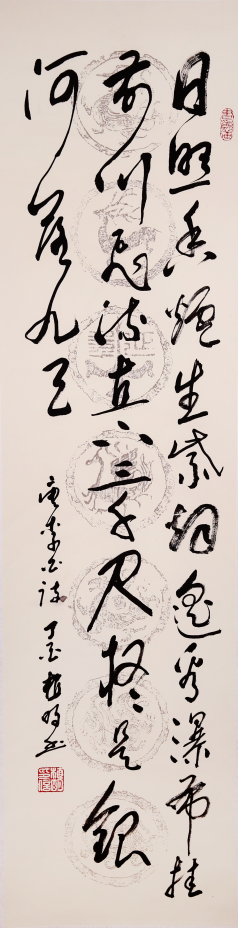 日照香爐生紫烟遥看瀑布挂
前川飛流直下三千尺疑是銀
河落九天
唐李白詩 丁酉 書